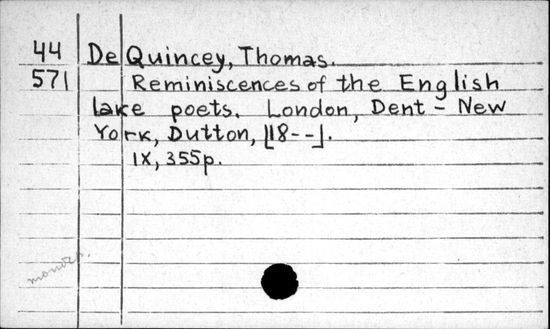 44 De Quincey, Thomas.
571 Reminiscences of the English
lake poets. London, Dent – New
York, Dutton, [18--].
IX, 355p.